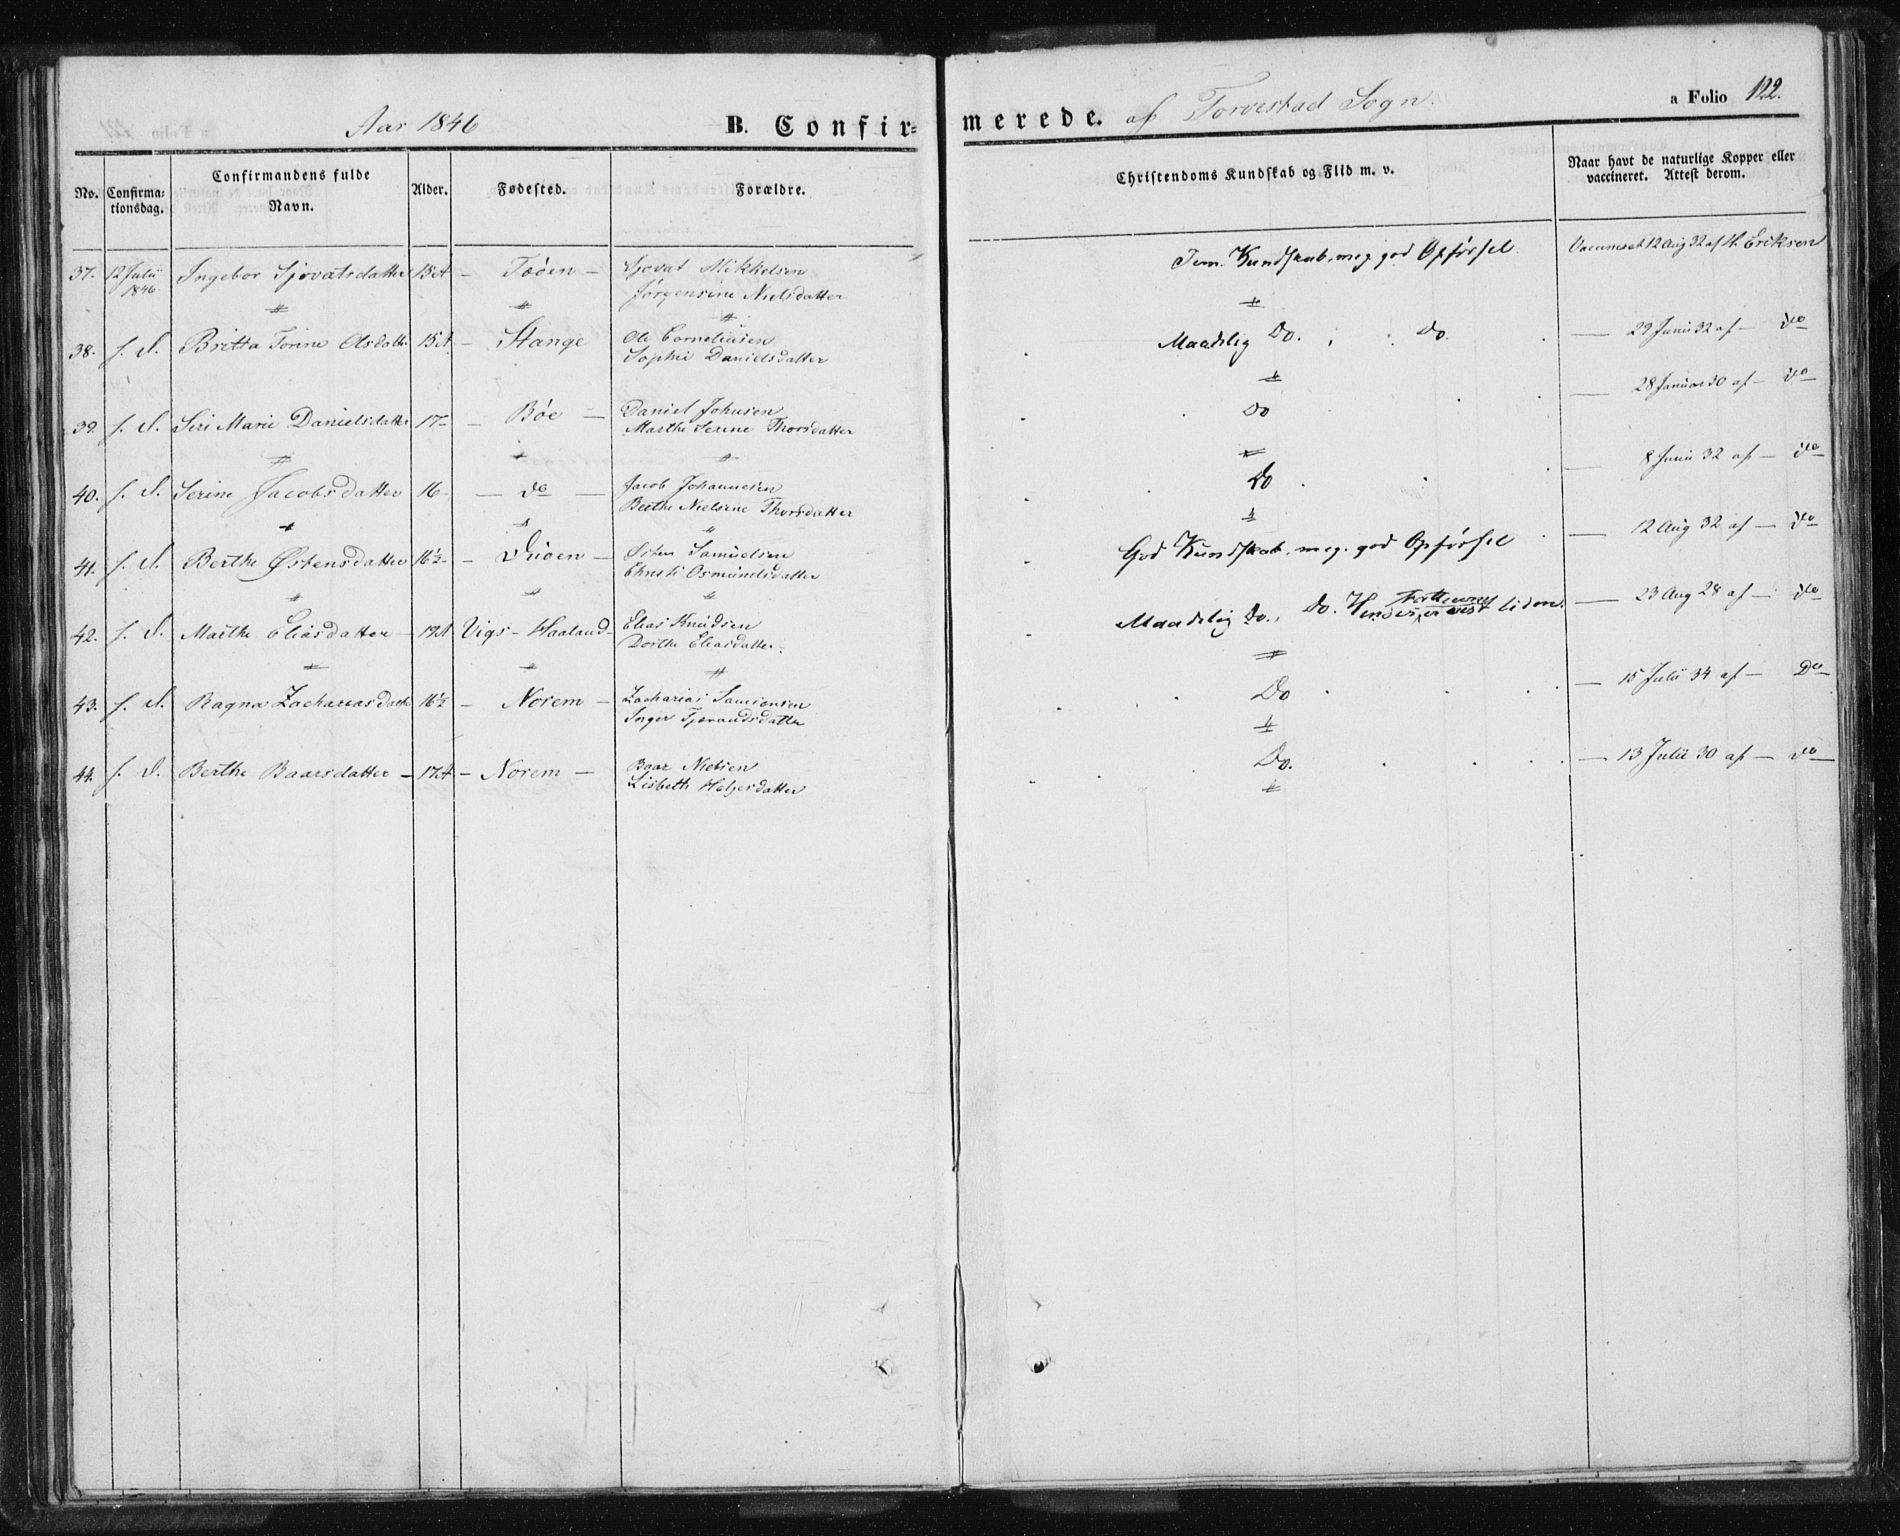 Aar 1846 B. Confirmerede. af Torvestad Sogn. a Folio 122.
No. Confirmationsdag. Confirmandens fulde Navn. Alder. Fødested. Forældre. Christendoms Kundskab og Flid m. v. Naar havt de naturlige Kopper eller vaccineret. Attest derom.
37. 12 Julii 1846. Ingebor Sjovatsdatter 15 A – – Sjovat Mikkelsen Tem. Kundskab, meg god Opførsel. Vaccineret 12 Aug 32 af H. Eriksen
Jørgensine Nielsdatter
38. f. d. Britta Torine Olsdatt. 15 A – Stange Ole Corneliusen Maadelig Do. Do. — 29 Junii 32 af – do
Sophie Danielsdatter
39. f. d. Siri Marie Danielsdatter 17 – Bøe – Daniel Johnsen Do — 28 Januar 30 af – do
Marthe Serine Thorsdatter
40. f. d. Serine Jacobsdatter 16 – do – Jacob Johannesen Do — 8 Junii 32 af – do
Berthe Nielsine Thorsdatter
41. f. d. Berthe Østensdatter 16½ – – Østen Samuelsen God Kundskab, meg. god Opførsel — 12 Aug 32 af – do
Christi Osmundsdatter
42. f. d. Marthe Eliasdatter – 19 A Vigs-Haaland – Elias Knudsen Maadelig Do., Do. er liden. — 23 Aug 28 af – do
Dorthe Eliasdatter.
43. f. d. Ragna Zachariasdatter 16½ – Norem – Zacharias Samsonsen Do — 15 Julii 34 af – Do
Inger Tjerandsdatter
44. f. d. Berthe Baarsdatter – 17 A – Norem – Baar Nielsen Do. — 13 Julii 30 af – do
Lisbeth Helgesdatter